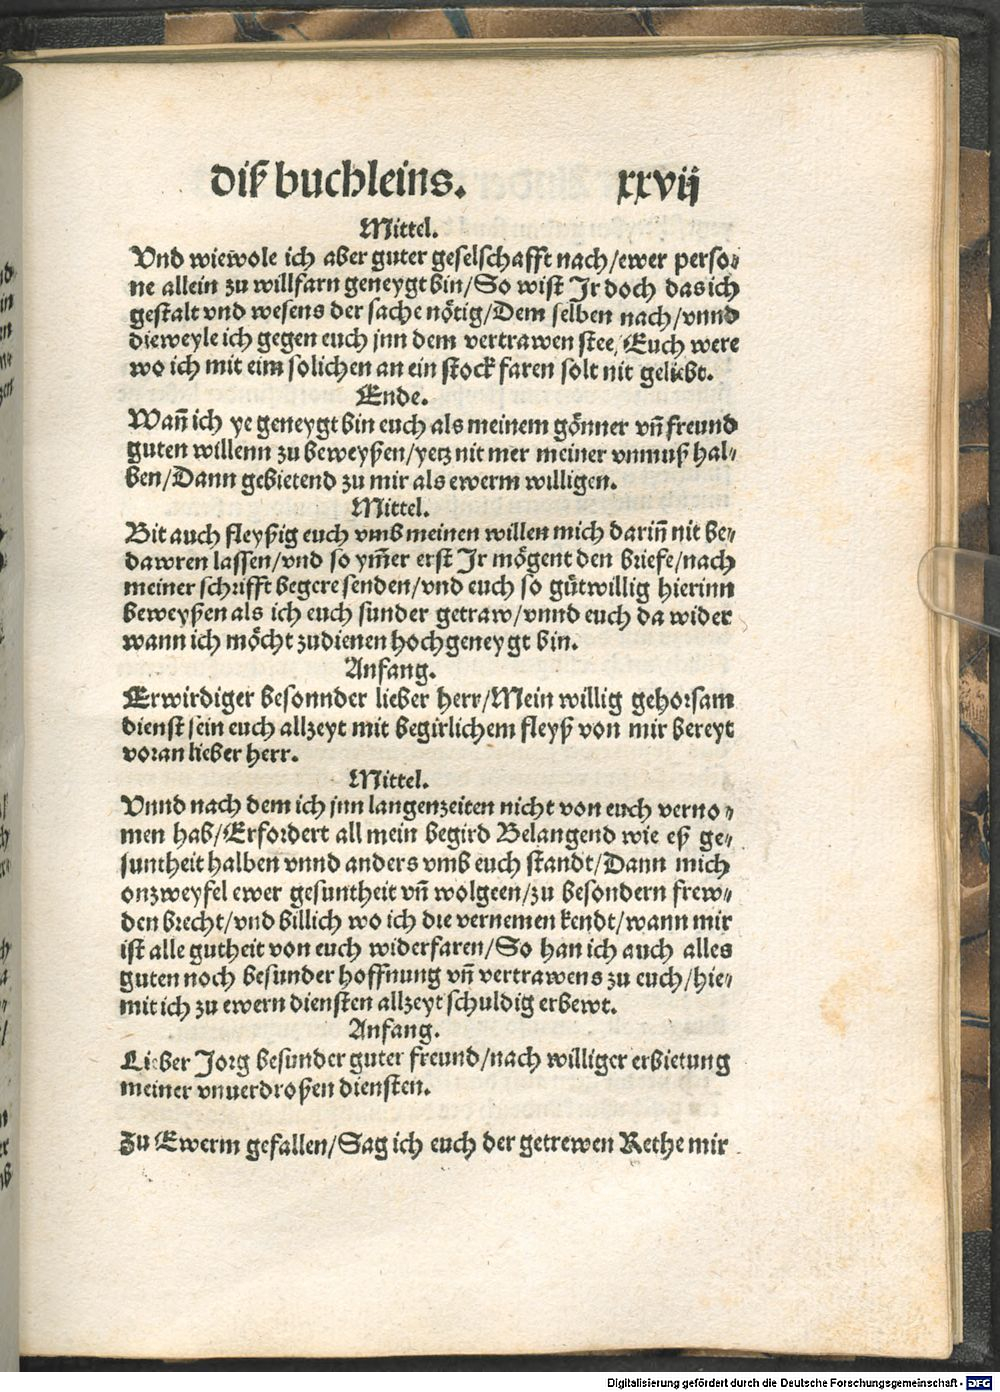 diß buchleins. xxvij
Mittel.
Vnd wiewole ich aber guter geselschafft nach/ewer perso⸗
ne allein zu willfarn geneygt bin/So wist Jr doch das ich
gestalt vnd wesens der sache nötig/Dem selben nach/vnnd
dieweyle ich gegen euch jnn dem vertrawen stee/Euch were
wo ich mit eim solichen an ein stock faren solt nit geliebt.
Ende.
Wañ ich ye geneygt bin euch als meinem gönner vñ freund
guten willenn zu beweyßen/yetz nit mer meiner vnmuß hal⸗
ben/Dann gebietend zu mir als ewerm willigen.
Mittel.
Bit auch fleyßig euch vmb meinen willen mich dariñ nit be⸗
dawren lassen/vnd so ym̃er erst Jr mögent den briefe/nach
meiner schrifft begere senden/vnd euch so gütwillig hierinn
beweyßen als ich euch sunder getraw/vnnd euch da wider
wann ich möcht zudienen hochgeneygt bin.
Anfang.
Erwirdiger besonnder lieber herr/Mein willig gehorsam
dienst sein euch allzeyt mit begirlichem fleyß von mir bereyt
voran lieber herr.
Mittel.
Vnnd nach dem ich jnn langenzeiten nicht von euch verno⸗
men hab/Erfordert all mein begird Belangend wie eß ge⸗
suntheit halben vnnd anders vmb euch standt/Dann mich
onzweyfel ewer gesuntheit vñ wolgeen/zu besondern frew⸗
den brecht/vnd billich wo ich die vernemen kendt/wann mir
ist alle gutheit von euch widerfaren/So han ich auch alles
guten noch besunder hoffnung vñ vertrawens zu euch/hie⸗
mit ich zu ewern diensten allzeyt schuldig erbewt.
Anfang.
Lieber Jorg besunder guter freund/nach williger erbietung
meiner vnuerdroßen diensten.
Zu Ewerm gefallen/Sag ich euch der getrewen Rethe mir
Digitalisierung gefördert durch die Deutsche Forschungsgemeinschaft - DFG